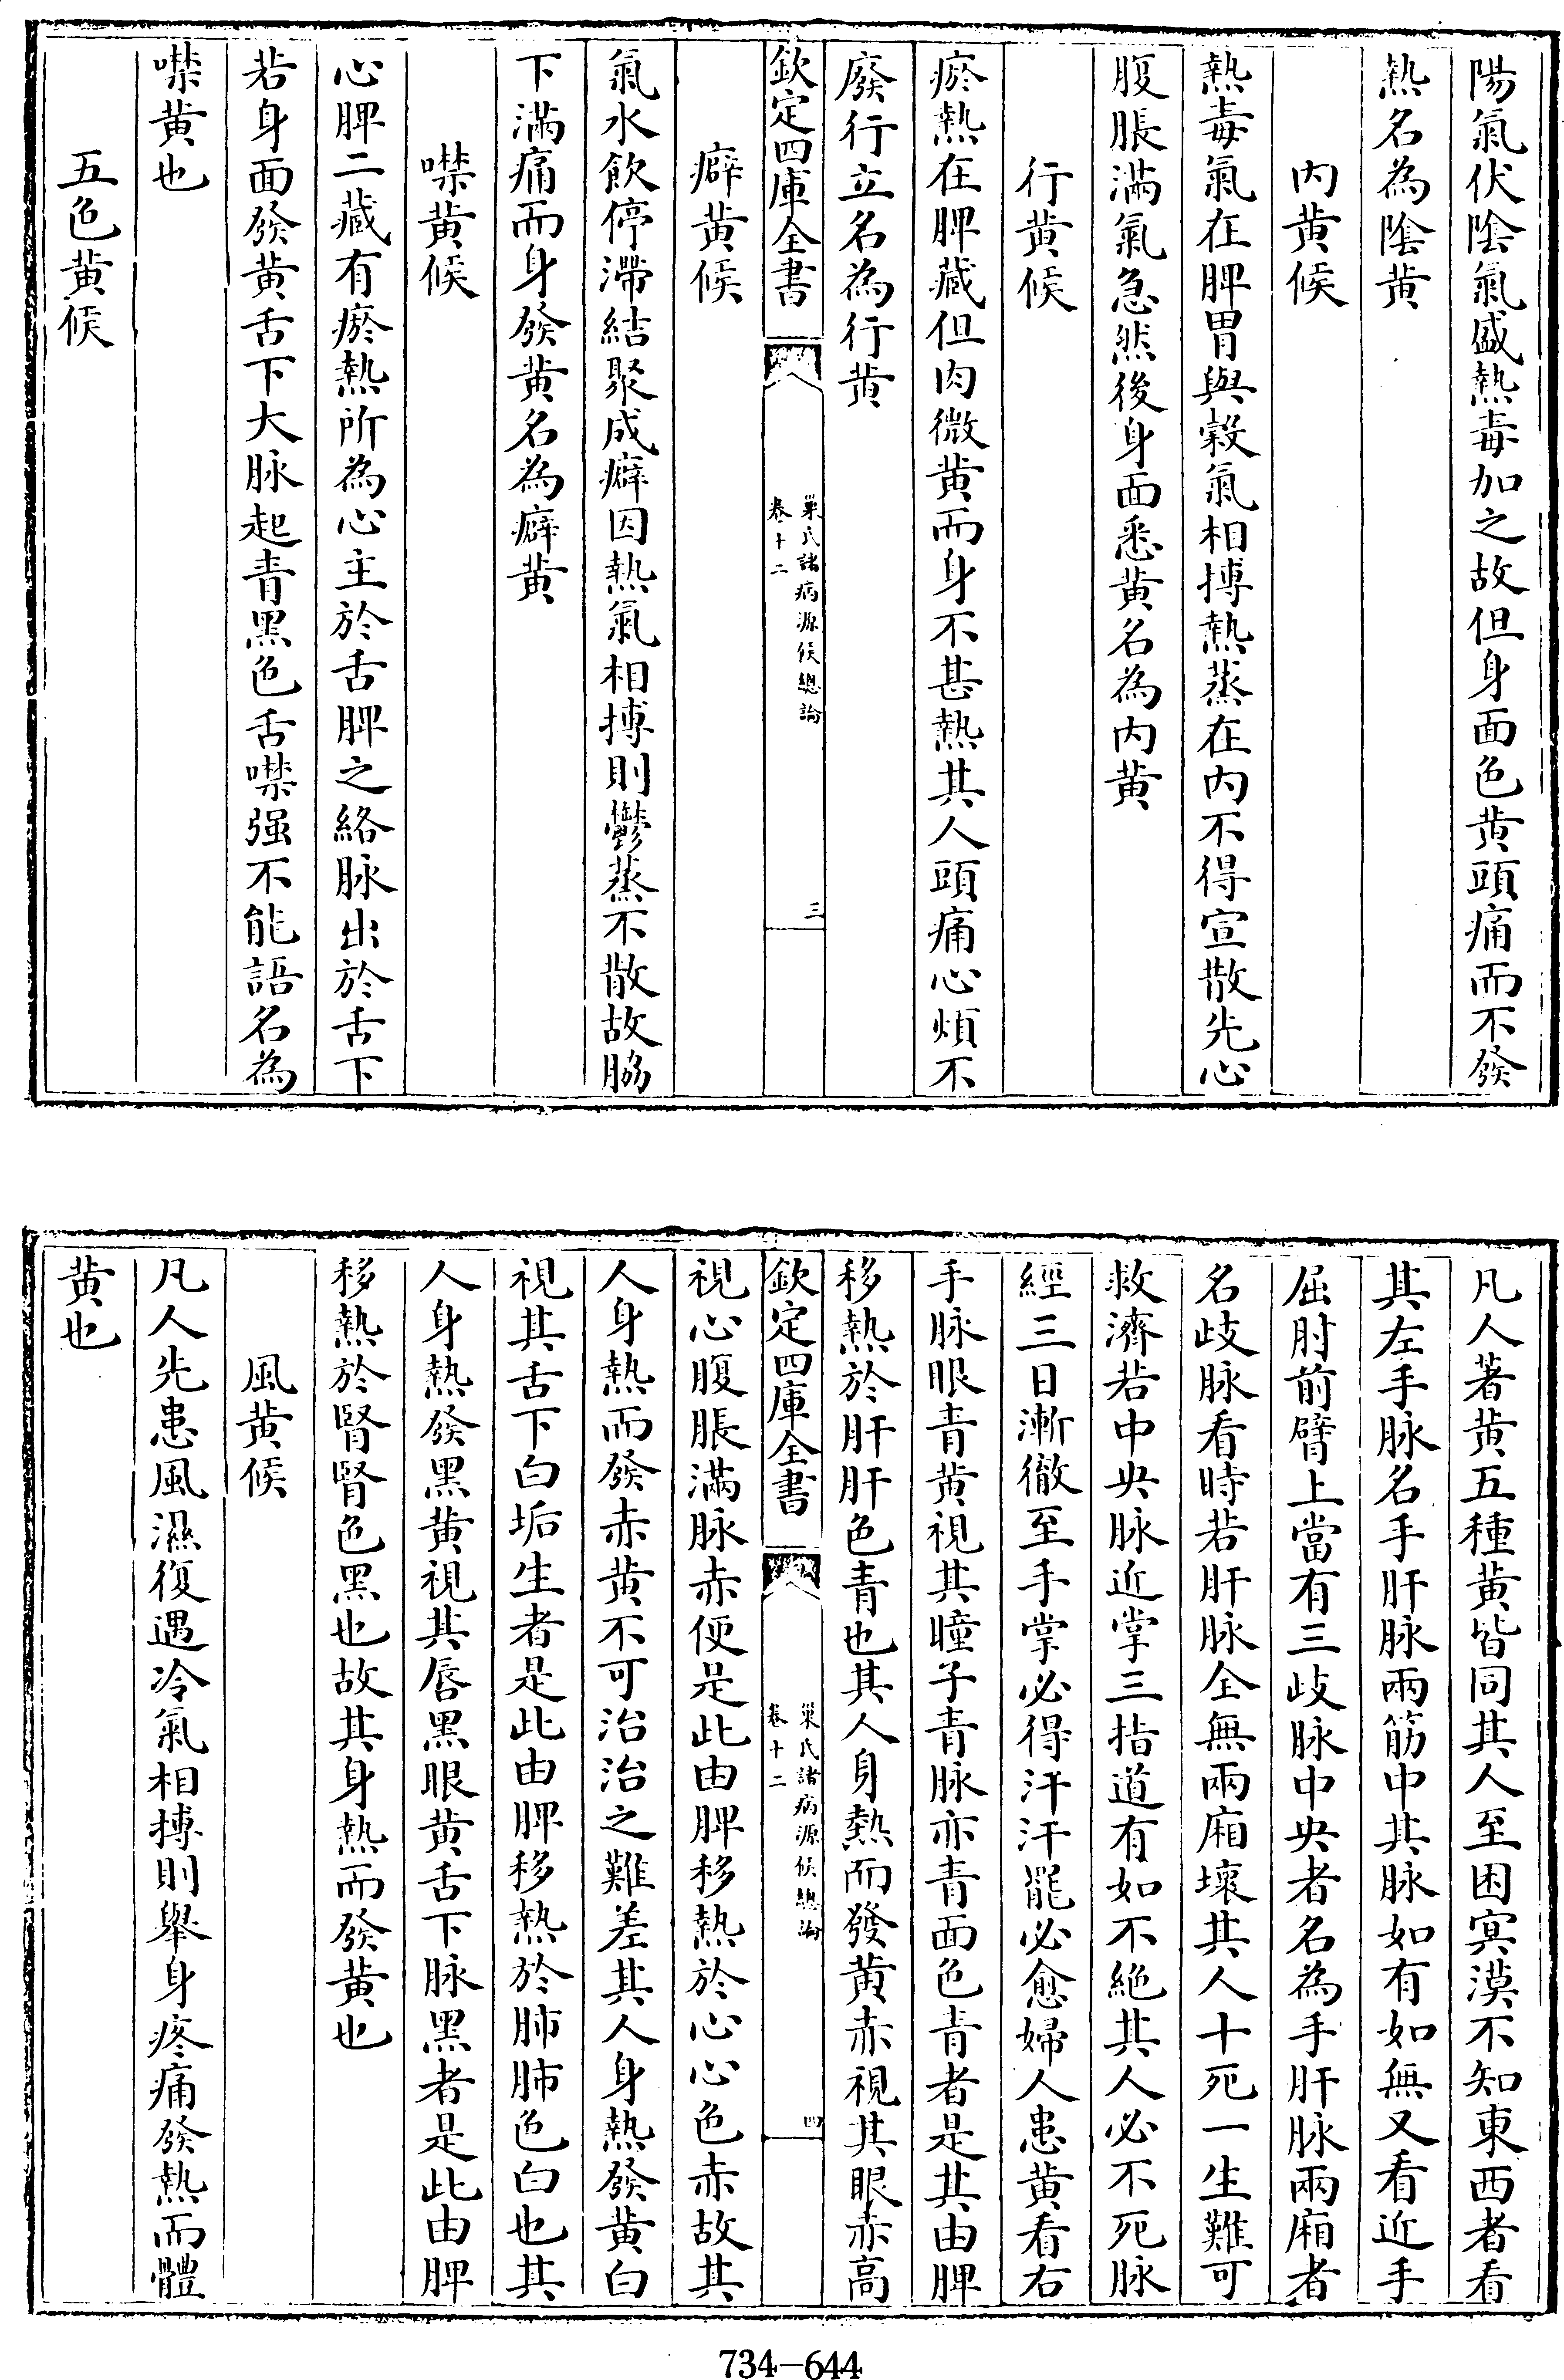 陽氣伏陰氣盛熱毒加之故但身面色黄頭痛而不發
熱名為陰黄
内黄候
熱毒氣在脾胃與穀氣相搏熱蒸在内不得宣散先心
腹脹滿氣急然後身面悉黄名為内黄
行黄候
瘀熱在脾藏但肉微黄而身不甚熱其人頭痛心煩不
廢行立名為行黄
欽定四庫全書
巢氏諸病源候總論
卷十二
三
癖黄候
氣水飲停滯結聚成癖因熱氣相搏則鬱蒸不散故脇
下滿痛而身發黄名為癖黄
噤黄候
心脾二藏有瘀熱所為心主於舌脾之絡脉出於舌下
若身面發黄舌下大脉起青黑色舌噤强不能語名為
噤黄也
五色黄候
凡人著黄五種黄皆同其人至困冥漠不知東西者看
其左手脉名手肝脉兩筋中其脉如有如無又看近手
屈肘前臂上當有三歧脉中央者名為手肝脉兩廂者
名歧脉看時若肝脉全無兩廂壞其人十死一生難可
救濟若中央脉近掌三指道有如不絶其人必不死脉
經三日漸徹至手掌必得汗汗罷必愈婦人患黄看右
手脉眼青黄視其瞳子青脉亦青面色青者是其由脾
移熱於肝肝色青也其人身熱而發黄赤視其眼赤高
欽定四庫全書
巢氏諸病源候總論
卷十二
四
視心腹脹滿脉赤便是此由脾移熱於心心色赤故其
人身熱而發赤黄不可治治之難差其人身熱發黄白
視其舌下白垢生者是此由脾移熱於肺肺色白也其
人身熱發黑黄視其唇黑眼黄舌下脉黑者是此由脾
移熱於腎腎色黑也故其身熱而發黄也
風黄候
凡人先患風濕復遇冷氣相搏則舉身疼痛發熱而體
黄也
734-644